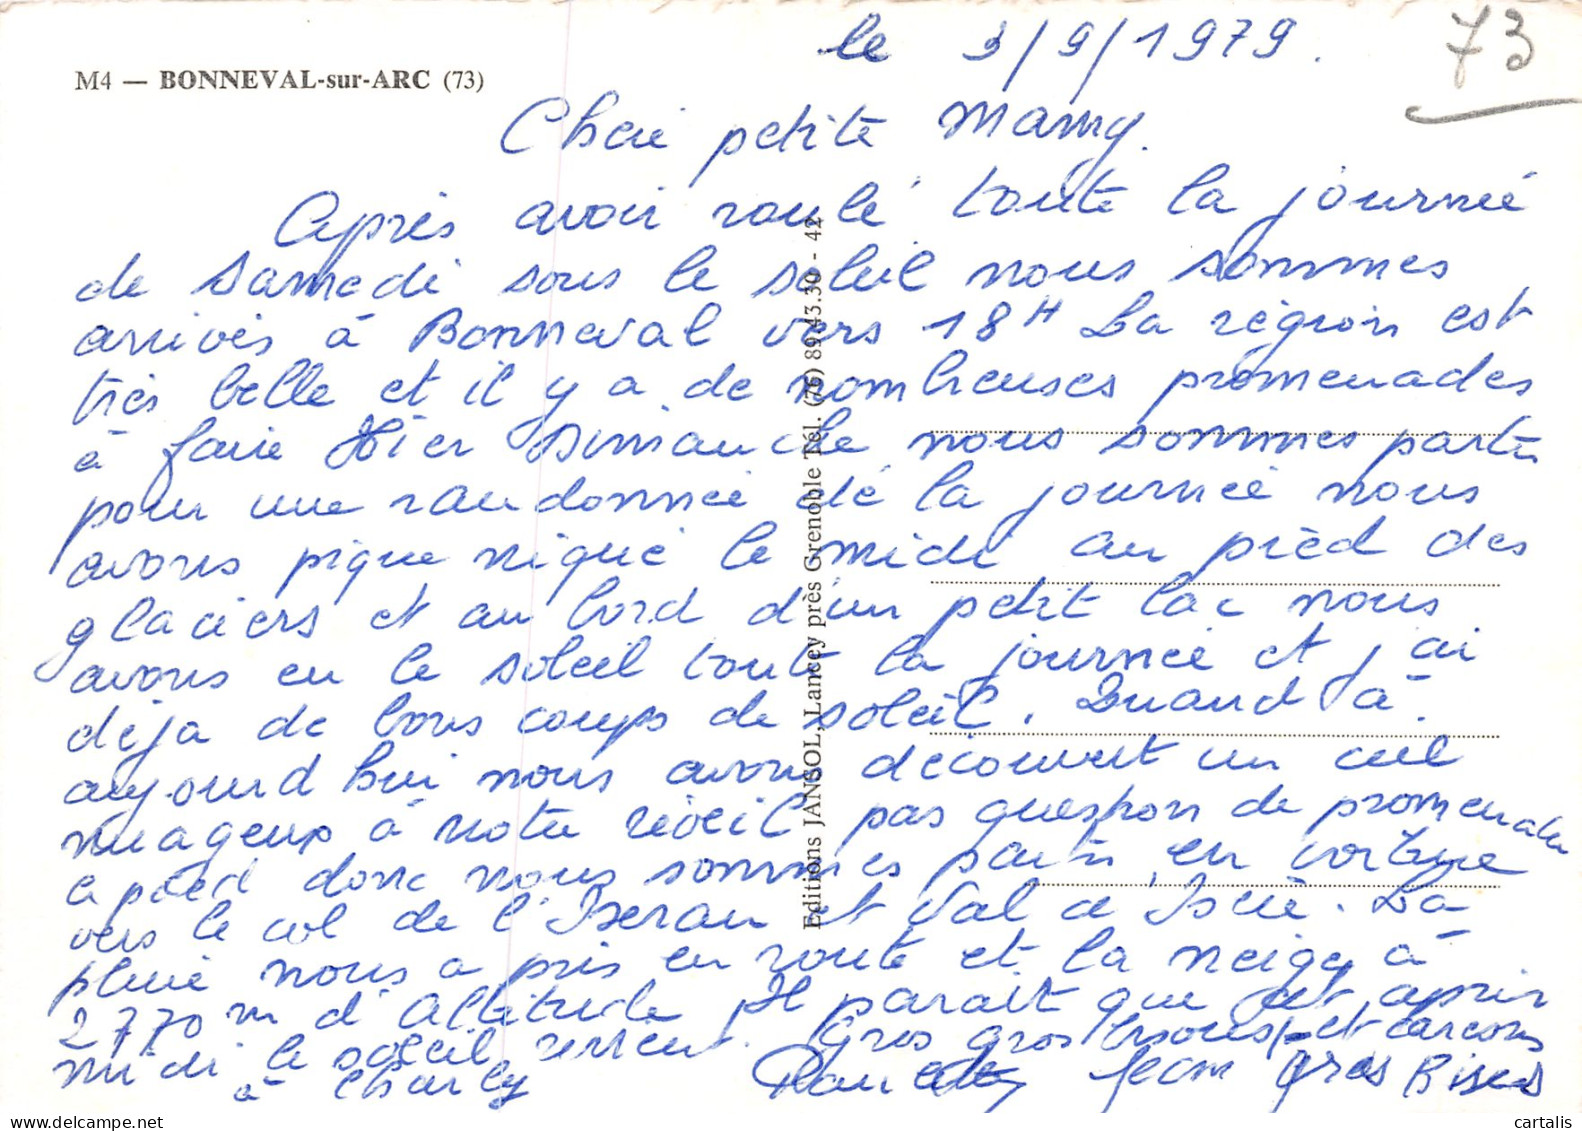 le 3/9/1979.
73
M4 — BONNEVAL-sur-ARC (73)
Cheie petite Mamy.
Après avoir roulé toute la journée
de Samedi sous le soleil nous sommes
arrivés à Bonneval vers 18H La région est
très belle et il y a de nombreuses promenades
à faire Hier Dimanche nous sommes partis
pour une randonnée de la journée nous
avons pique niqué le midi au pied des
glaciers et au bord d'un petit lac nous
avons eu le soleil toute la journée et j'ai
déja de bons coups de soleil. Quand à
aujourd hui nous avons découvert un ciel
nuageux à notre réveil pas question de promenades
a pied donc nous sommes partis en voiture
vers le col de l'Iseran et Val d'Isère. La
pluie nous a pris en route et la neige à
2770 m d'Altitude Il parait que cet après
midi le soleil revient. Gros gros bisous et
à Charly
Jean Gros Bises
Editions JANSOL, Lancey près Grenoble Tél. (76) 89.43.30 - 42
cartalis